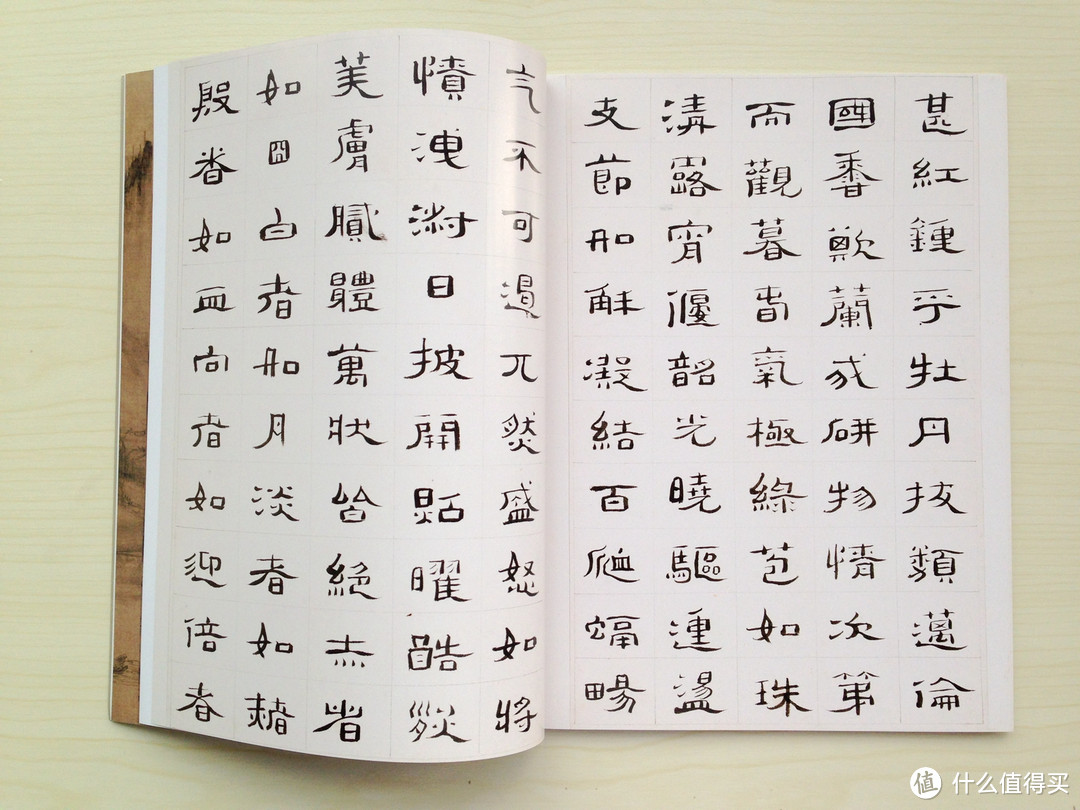 甚紅鍾乎牡丹拔類邁倫
國香欺蘭我研物情次第
而觀暮春氣極綠苞如珠
清露宵偃韶光曉驅連盪
支節如解凝結百脈融暢
气不可遏兀然盛怒如將
憤洩淑日披開照曜酷烈
美膚膩體萬狀皆絕赤者
如日白者如月淡者如赭
殷者如血向者如迎倍者
值 什么值得买